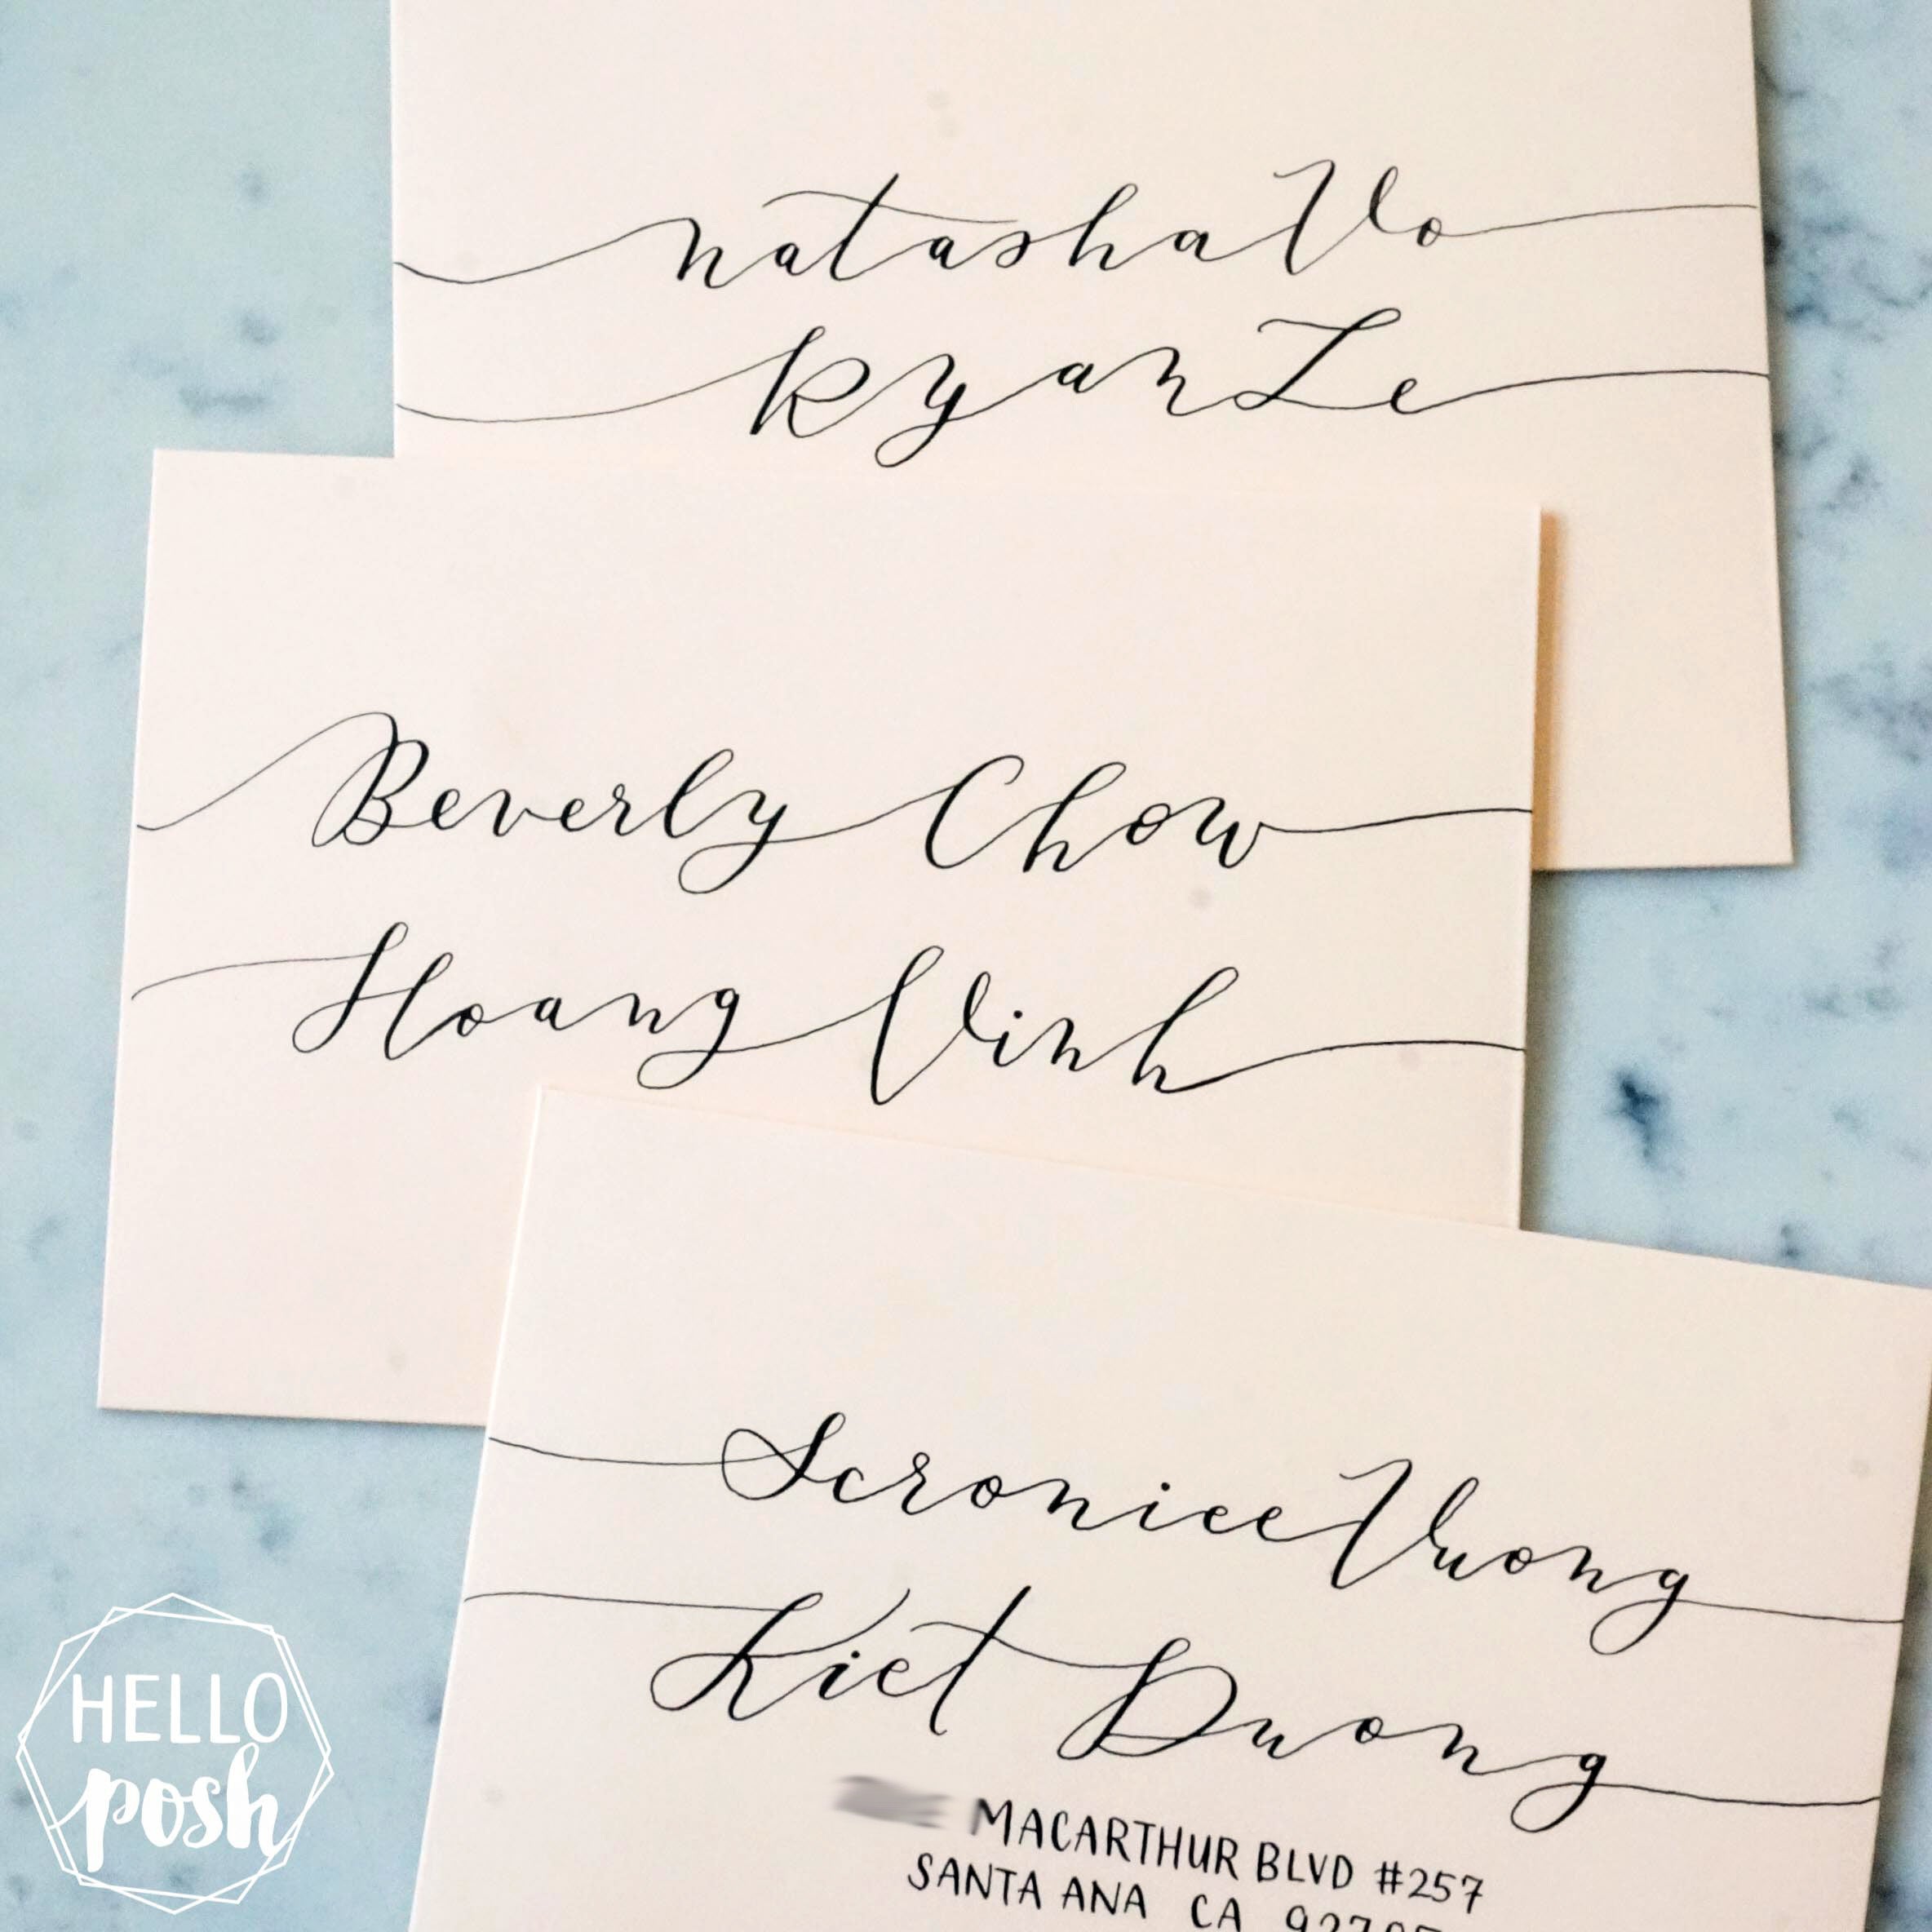 natasha Vo
Ryan Le
Beverly Chow
Hoang Vinh
Scronice Vuong
Kiet Duong
MACARTHUR BLVD #257
SANTA ANA CA
HELLO
posh